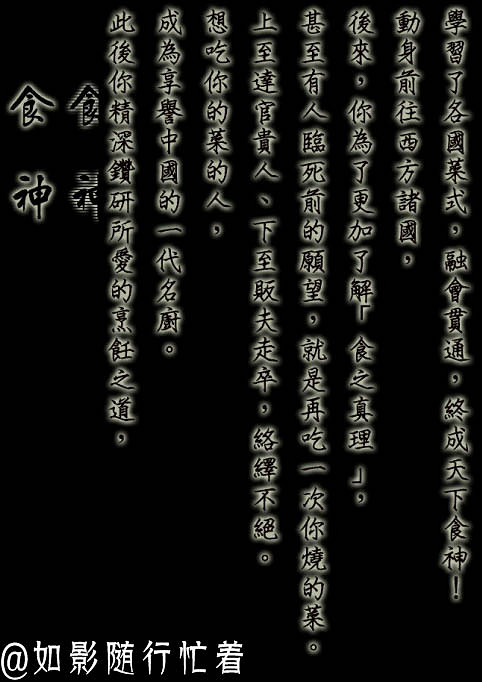 食神
食神
此後你精深鑽研所愛的烹飪之道，
成為享譽中國的一代名廚。
想吃你的菜的人，
上至達官貴人、下至販夫走卒，絡繹不絕。
甚至有人臨死前的願望，就是再吃一次你燒的菜。
後來，你為了更加了解「食之真理」，
動身前往西方諸國，
學習了各國菜式，融會貫通，終成天下食神！
@如影随行忙着